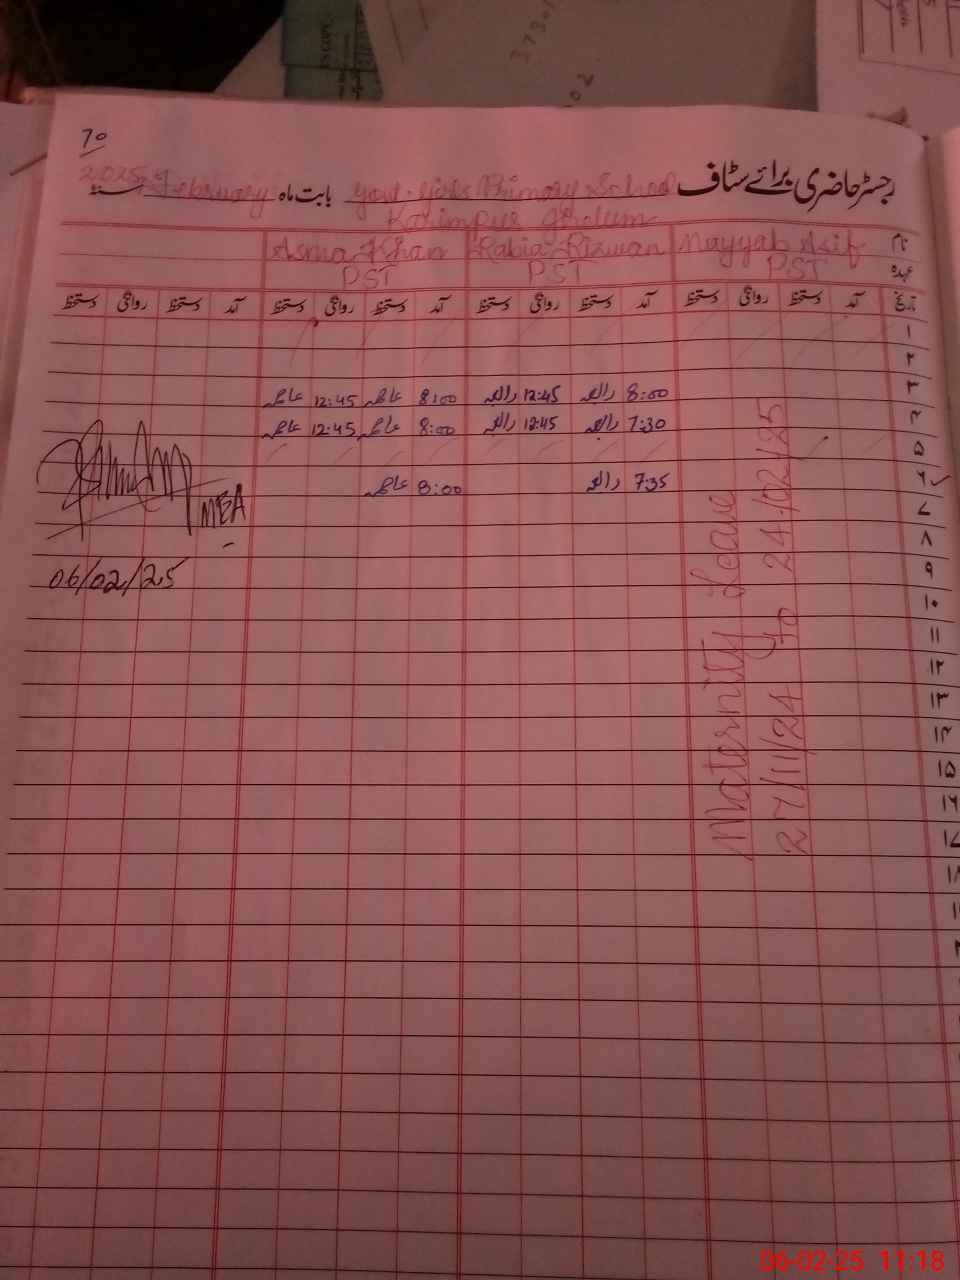 70
رجسٹر حاضری برائے سٹاف Govt. Girls Primary School بابت ماہ February 2025
Karimpur Jhelum
نام Nayyab Asif Rabia Rizwan Asma Khan
عہدہ PST PST PST
تاریخ آمد دستخط روانگی دستخط آمد دستخط روانگی دستخط آمد دستخط روانگی دستخط آمد دستخط روانگی دستخط
۱
۲
۳ 8:00 12:45 8:00 12:45
۴ 7:30 12:45 8:00 12:45
۵
۶ 7:35 8:00
۷
۸
۹
۱۰
۱۱
۱۲
۱۳
۱۴
۱۵
۱۶
۱۷
۱۸
Maternity Leave
27/11/24 to 24/02/25
MEA
06/02/25
06-02-25 11:18